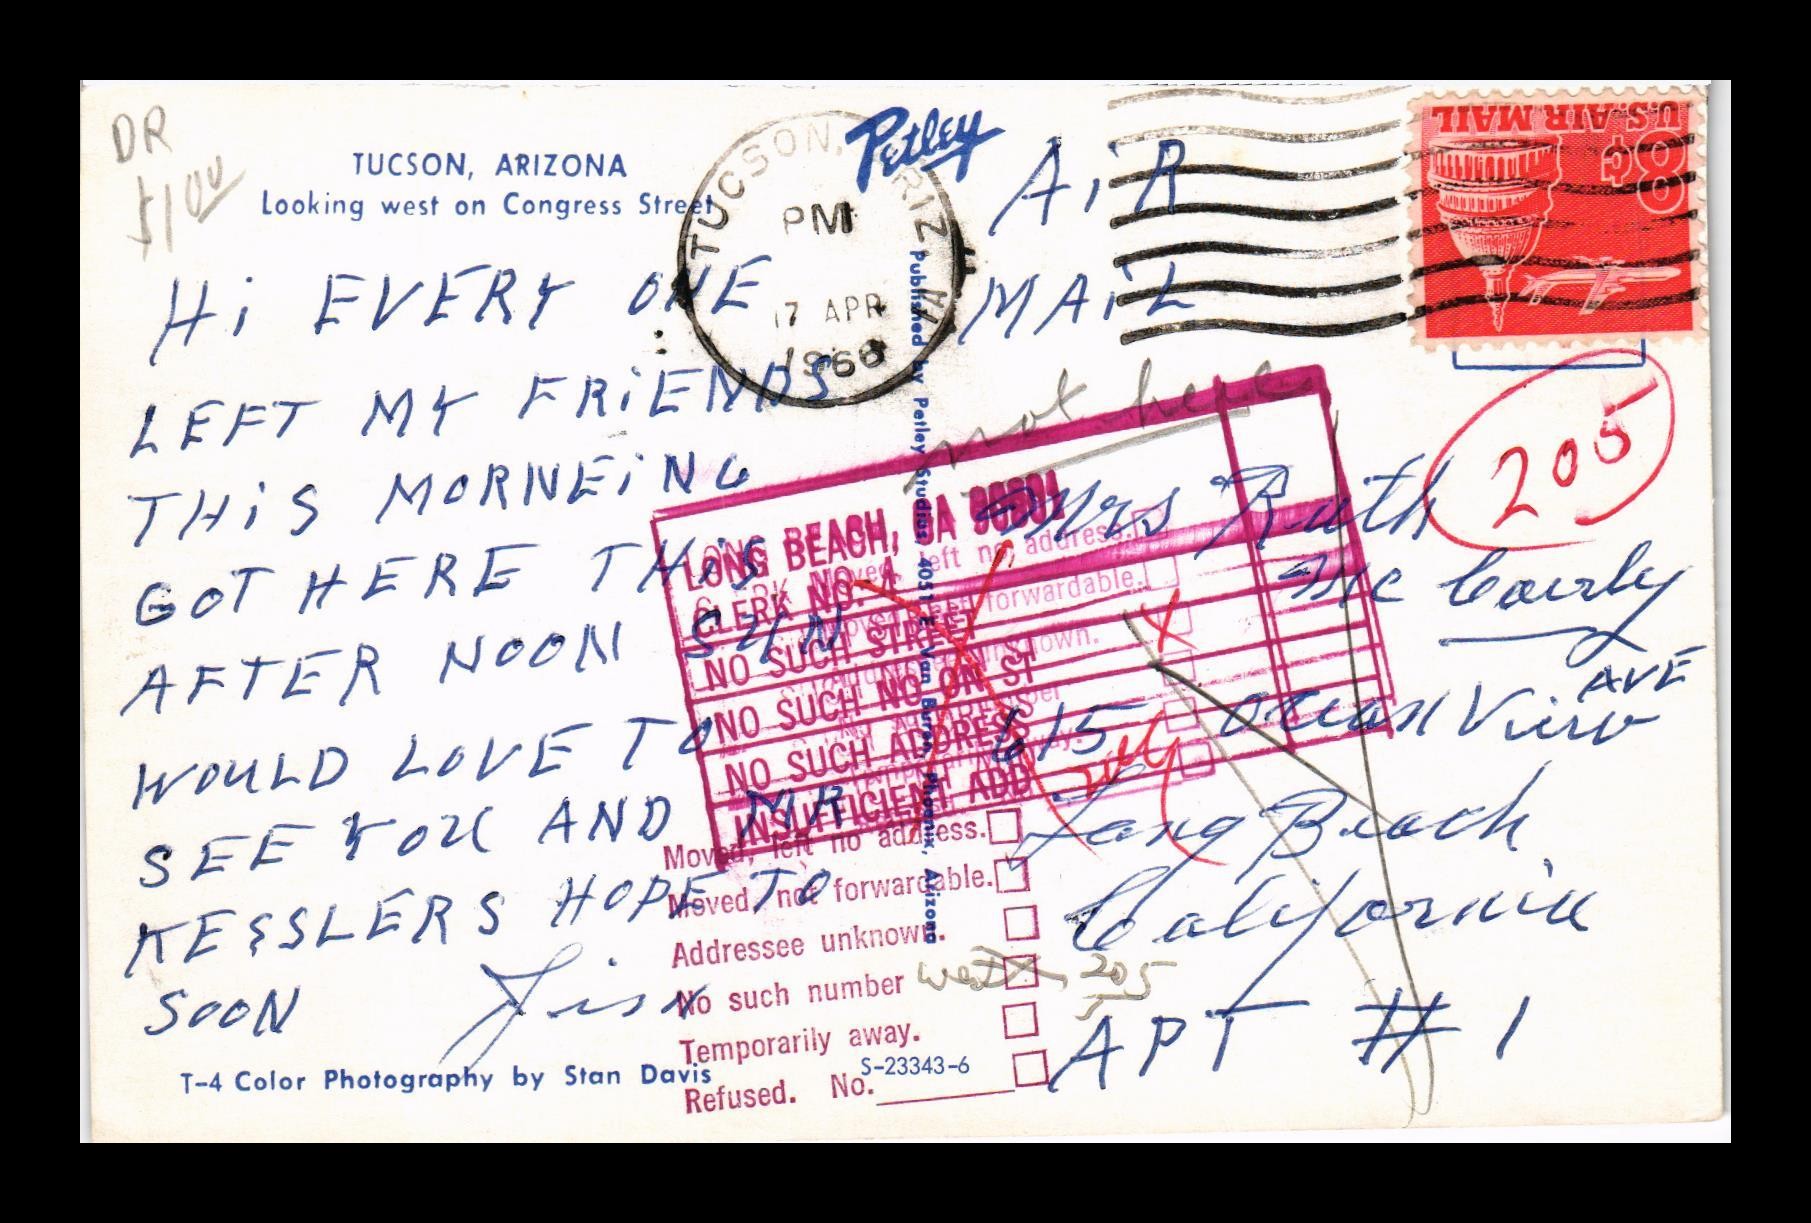 DR
$1.00
TUCSON, ARIZONA
Looking west on Congress Street
Hi EVERY ONE
LEFT MY FRiENDS
THiS MORNEiNG
GOT HERE THiS
AFTER NOON SUN
WOULD LOVE TO
SEE YOU AND MR
KESSLERS HOPE TO
SOON
Jim
T-4 Color Photography by Stan Davis
S-23343-6
Petley
Published by Petley Studios, 4051 E. Van Buren, Phoenix, Arizona
TUCSON, ARIZ
PM
17 APR
1966
AiR
MAiL
U.S. AIR MAIL
8¢
not here
205
Mrs Ruth
Mc
615 Ocean View AVE
Long Beach
California
APT # 1
205
LONG BEACH, CA
CLERK NO. A
NO SUCH STREET
NO SUCH NO ON ST
NO SUCH ADDRESS
INSUFFICIENT ADD
left no address.
forwardable.
Moved, left no address.
Moved, not forwardable.
Addressee unknown.
No such number
Temporarily away.
Refused. No.